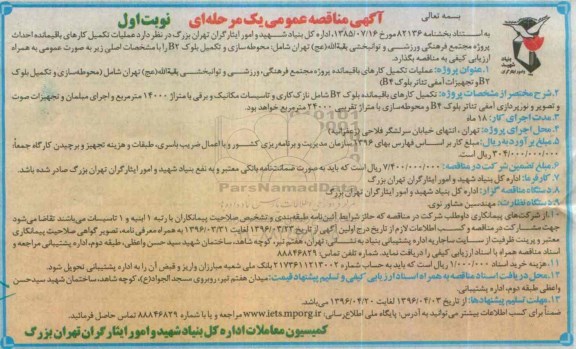 بسمه تعالی
آگهی مناقصه عمومی یک مرحله‌ای نوبت اول
بنیاد شهید و امور ایثارگران
به استناد بخشنامه ۸۲۱۳۶ مورخ ۱۳۸۵/۰۷/۱۶، اداره کل بنیاد شهید و امور ایثارگران تهران بزرگ در نظر دارد عملیات تکمیل کارهای باقیمانده احداث
پروژه مجتمع فرهنگی ورزشی و توانبخشی بقیة‌الله(عج) تهران شامل: محوطه‌سازی و تکمیل بلوک B۲ را با مشخصات اصلی زیر به صورت عمومی به همراه
ارزیابی کیفی به مناقصه بگذارد.
۱.عنوان پروژه: عملیات تکمیل کارهای باقیمانده پروژه مجتمع فرهنگی، ورزشی و توانبخشی بقیة‌الله(عج) تهران شامل: محوطه‌سازی و تکمیل بلوک
B۲ و تجهیزات آمفی تئاتر بلوک B۴
۲.شرح مختصر از مشخصات پروژه: تکمیل کارهای باقیمانده بلوک B۲ شامل نازک‌کاری و تاسیسات مکانیکی و برقی با متراژ ۱۴۰۰۰ مترمربع و اجرای مبلمان و تجهیزات صوت
و تصویر و نورپردازی آمفی تئاتر بلوک B۴ و محوطه‌سازی با متراژ تقریبی ۲۴۰۰۰ مترمربع خواهد بود.
۳.مدت اجرای کار: ۱۸ ماه
۴.محل اجرای پروژه: تهران، انتهای خیابان سرلشگر فلاحی (زعفرانیه)
۵.مبلغ برآورد به ریال: مبلغ کار بر اساس فهارس بهای ۱۳۹۶ سازمان مدیریت و برنامه‌ریزی کشور و با اعمال ضریب بالاسری، طبقات و هزینه تجهیز و برچیدن کارگاه جمعاً:
۳۰۴/۰۰۰/۰۰۰/۰۰۰ ریال است.
۶.مبلغ تضمین شرکت در مناقصه: ۷/۴۰۰/۰۰۰/۰۰۰ ریال است که باید به صورت ضمانت‌نامه بانکی معتبر و به نفع بنیاد شهید و امور ایثارگران تهران بزرگ صادر شده باشد.
۷.کارفرما: اداره کل بنیاد شهید و امور ایثارگران تهران بزرگ
۸.دستگاه مناقصه گزار: اداره کل بنیاد شهید و امور ایثارگران تهران بزرگ
۹.دستگاه نظارت: مهندسین مشاور نوی.
۱۰.از شرکت‌های پیمانکاری داوطلب شرکت در مناقصه که حائز شرایط آئین‌نامه طبقه‌بندی و تشخیص صلاحیت پیمانکاران با رتبه ۱ ابنیه و ۱ تاسیسات می‌باشند تقاضا می‌شود
جهت مشارکت در مناقصه و کسب اطلاعات لازم از تاریخ درج اولین آگهی از تاریخ ۱۳۹۶/۰۳/۲۳ لغایت ۱۳۹۶/۰۳/۳۱ به همراه معرفی نامه، تصویر گواهی صلاحیت پیمانکاری
معتبر و پرینت ظرفیت از سایت ساجار به اداره پشتیبانی بنیاد به نشانی: تهران، هفتم تیر، کوچه شاهد، ساختمان شهید سید حسن واعظی، طبقه دوم، اداره پشتیبانی مراجعه و
اسناد مناقصه همراه با اسناد ارزیابی کیفی را دریافت نمایند. شماره تلفن تماس: ۸۸۸۴۶۸۲۹
۱۱.هزینه خرید اسناد ۱/۰۰۰/۰۰۰ ریال است که باید به حساب شماره ۲۱۷۳۶۱۱۲۱۳۰۰۲ بانک ملی شعبه مبارزان واریز و فیش آن را به اداره پشتیبانی تحویل شود.
۱۲.محل دریافت اسناد مناقصه به همراه اسناد ارزیابی کیفی و تسلیم پیشنهاد قیمت: میدان هفتم تیر، روبروی مسجد الجواد(ع)، کوچه شاهد، ساختمان شهید سیدحسن
واعظی طبقه دوم، اداره پشتیبانی
۱۳.مهلت تسلیم پیشنهادها: از تاریخ ۱۳۹۶/۰۴/۰۳ لغایت ۱۳۹۶/۰۴/۲۰ می‌باشد.
ضمناً برای کسب اطلاعات بیشتر می‌توانید به آدرس: پایگاه ملی اطلاع‌رسانی: www.iets.mporg.ir مراجعه و یا با شماره ۸۸۸۴۶۸۲۹ تماس حاصل فرمائید.
کمیسیون معاملات اداره کل بنیاد شهید و امور ایثارگران تهران بزرگ
ParsNamadData